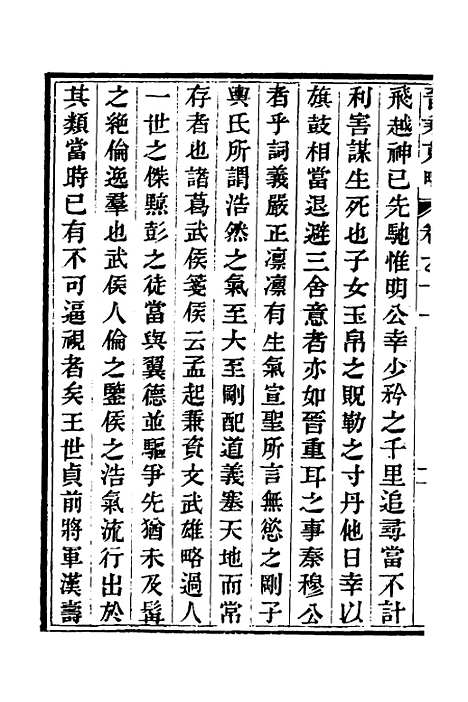 飛越神已先馳惟明公幸少矜之千里追尋當不計
利害謀生死也子女玉帛之貺勒之寸丹他日幸以
旗鼓相當退避三舍意者亦如晉重耳之事秦穆公
者乎詞義嚴正凛凛有生氣宣聖所言無慾之剛子
輿氏所謂浩然之氣至大至剛配道義塞天地而常
存者也諸葛武侯箋侯云孟起兼資文武雄略過人
一世之傑黥彭之徒當與翼德並驅爭先猶未及髯
之絶倫逸羣也武侯人倫之鑒侯之浩氣流行出於
其類當時已有不可逼視者矣王世貞前將軍漢壽